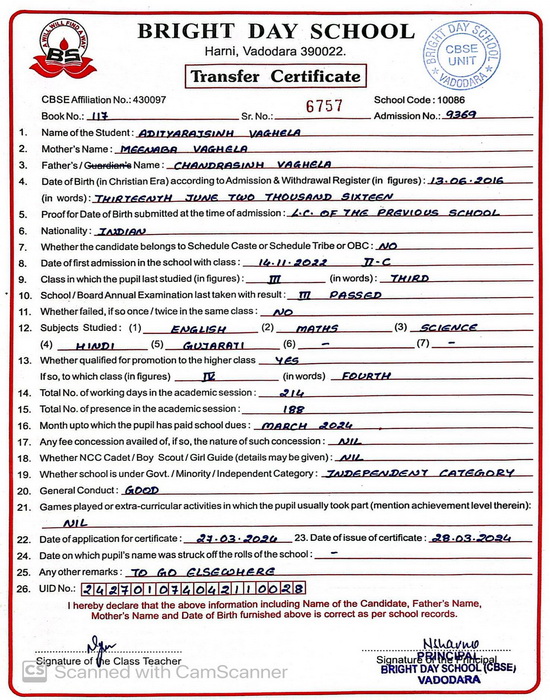 A WILL WILL FIND A WAY
BS
BRIGHT DAY SCHOOL
Harni, Vadodara 390022.
Transfer Certificate
BRIGHT DAY SCHOOL
CBSE
UNIT
VADODARA
CBSE Affiliation No.: 430097
6757
School Code : 10086
Book No.: 117 Sr. No.: Admission No.: 9369
1. Name of the Student : ADITYARAJSINH VAGHELA
2. Mother's Name : MEENABA VAGHELA
3. Father's / Guardian's Name : CHANDRASINH VAGHELA
4. Date of Birth (in Christian Era) according to Admission & Withdrawal Register (in figures) : 13.06.2016
(in words) : THIRTEENTH JUNE TWO THOUSAND SIXTEEN
5. Proof for Date of Birth submitted at the time of admission : L.C. OF THE PREVIOUS SCHOOL
6. Nationality : INDIAN
7. Whether the candidate belongs to Schedule Caste or Schedule Tribe or OBC : NO
8. Date of first admission in the school with class : 14.11.2022 II-C
9. Class in which the pupil last studied (in figures) : III (in words) : THIRD
10. School / Board Annual Examination last taken with result : III PASSED
11. Whether failed, if so once / twice in the same class : NO
12. Subjects Studied : (1) ENGLISH (2) MATHS (3) SCIENCE
(4) HINDI (5) GUJARATI (6) - (7) -
13. Whether qualified for promotion to the higher class YES
If so, to which class (in figures) IV (in words) FOURTH
14. Total No. of working days in the academic session : 214
15. Total No. of presence in the academic session : 188
16. Month upto which the pupil has paid school dues : MARCH 2024
17. Any fee concession availed of, if so, the nature of such concession : NIL
18. Whether NCC Cadet / Boy Scout / Girl Guide (details may be given) : NIL
19. Whether school is under Govt. / Minority / Independent Category : INDEPENDENT CATEGORY
20. General Conduct : GOOD
21. Games played or extra-curricular activities in which the pupil usually took part (mention achievement level therein) :
NIL
22. Date of application for certificate : 27.03.2024 23. Date of issue of certificate : 28.03.2024
24. Date on which pupil's name was struck off the rolls of the school : -
25. Any other remarks : TO GO ELSEWHERE
26. UID No.: 242701074042110028
I hereby declare that the above information including Name of the Candidate, Father's Name,
Mother's Name and Date of Birth furnished above is correct as per school records.
Signature of the Class Teacher
Signature of the Principal
PRINCIPAL
BRIGHT DAY SCHOOL (CBSE)
VADODARA
CS Scanned with CamScanner